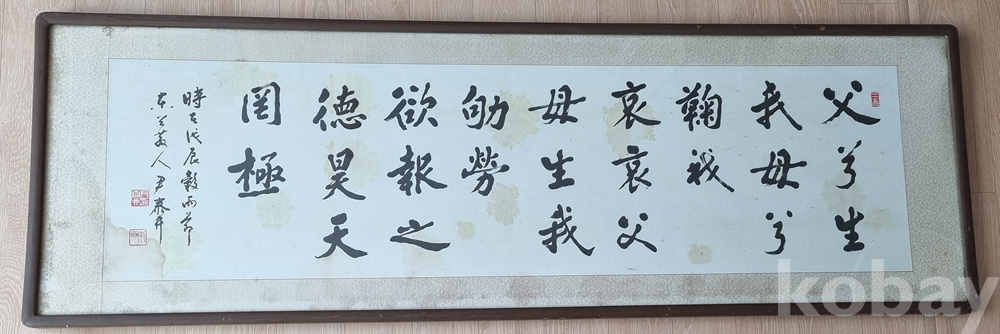 父兮生
我母兮
鞠我
哀哀父
母生我
劬勞
欲報之
德昊天
罔極
時在戊辰穀雨節
人尹泰
kobay